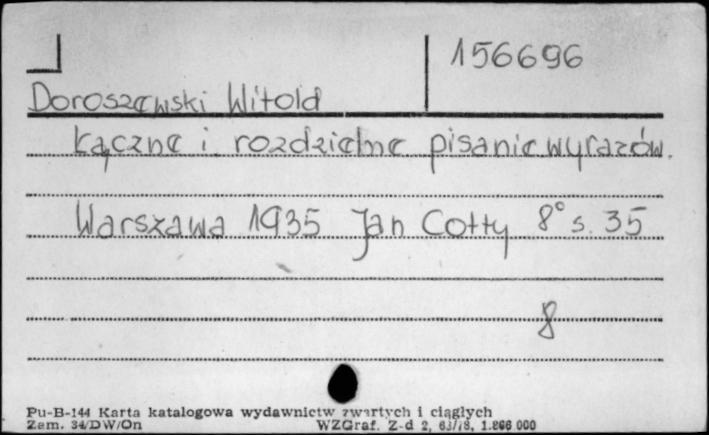 156696
Doroszewski Witold
Łączne i rozdzielne pisanie wyrazów.
Warszawa 1935 Jan Cotty 8° s. 35
8
Pu-B-144 Karta katalogowa wydawnictw zwartych i ciągłych
Zam. 34/DW/On WZGraf. Z-d 2, 63/78, 1.866 000